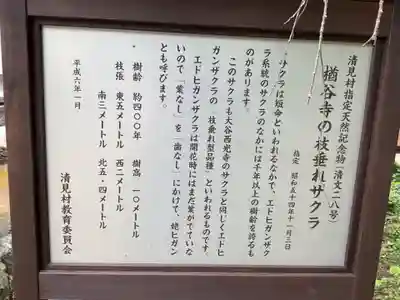 清見村指定天然記念物（清文二八号）
楢谷寺の枝垂れサクラ
指定 昭和五十四年十一月三日
サクラは短命といわれるなかで、エドヒガンザク
ラ系統のサクラのなかには千年以上の樹齢を誇るも
のがあります。
このサクラも大谷西光寺のサクラと同じくエドヒ
ガンザクラの 枝垂れ型品種 といわれるものです。
エドヒガンザクラは開花時にはまだ葉がでていな
いので「葉なし」を「歯なし」にかけて、姥ヒガン
とも呼びます。
樹齢 約四〇〇年 樹高 一〇メートル
枝張 東五メートル 西二メートル
南三メートル 北五・四メートル
平成六年一月
清見村教育委員会